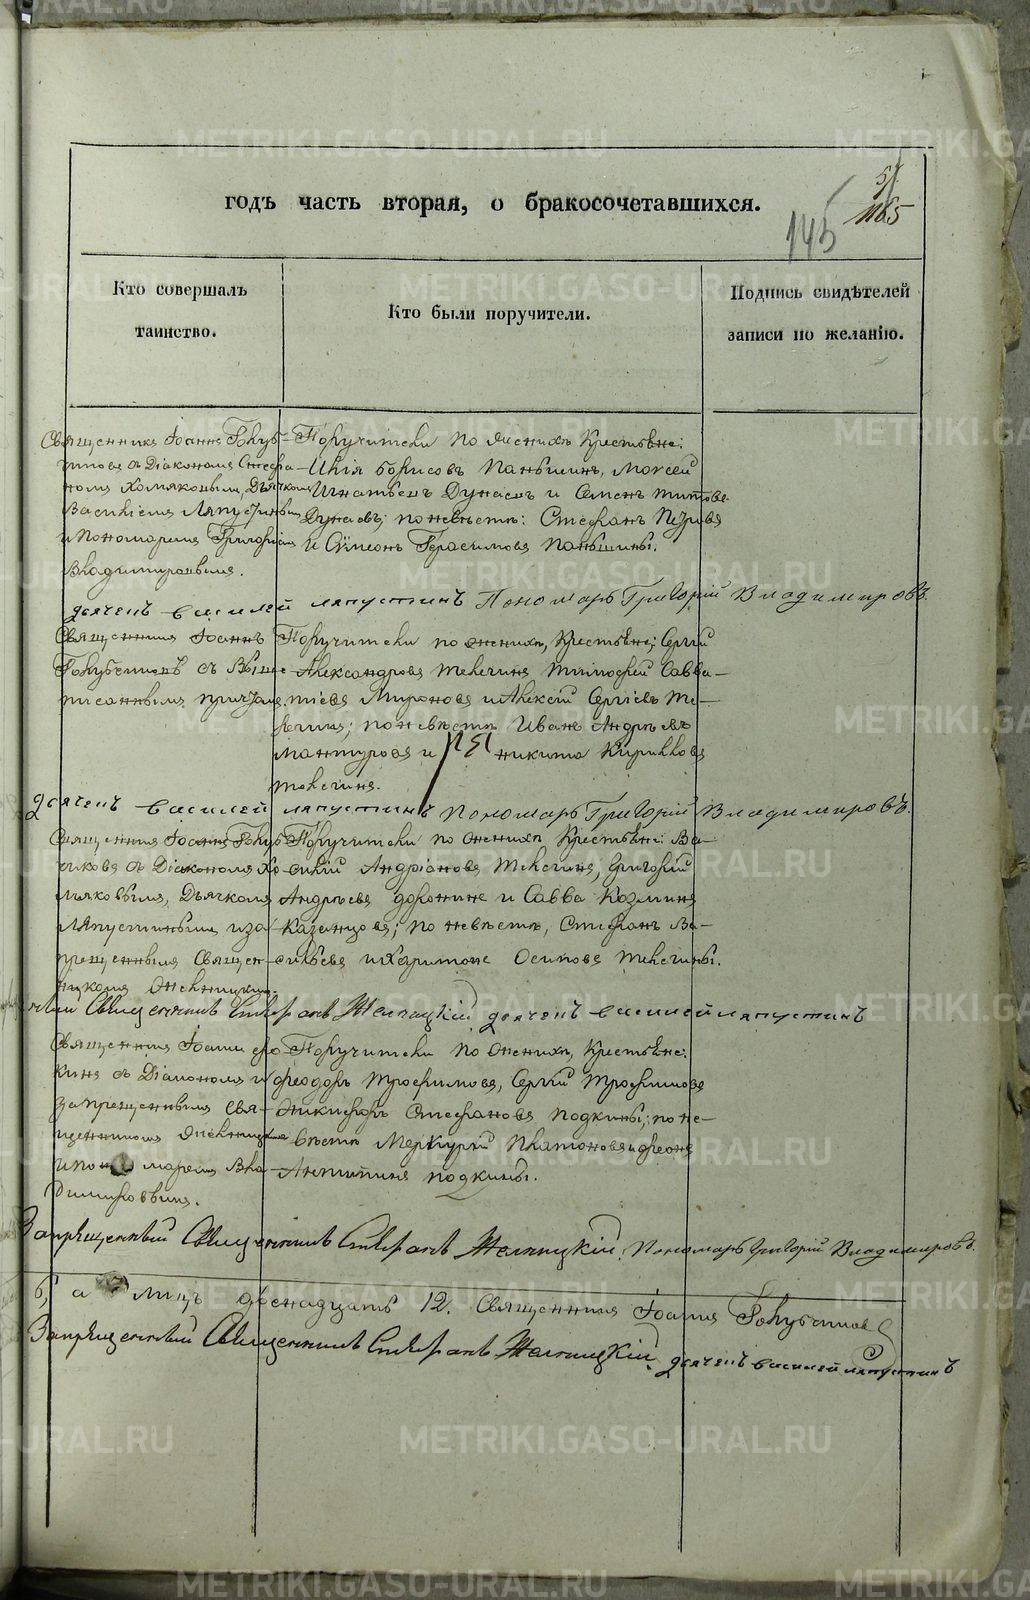 годъ часть вторая, о бракосочетавшихся.
51
1165
145
Кто совершалъ
таинство.
Кто были поручители.
Подпись свидѣтелей
записи по желанію.
Священникъ Іоаннъ Голуб-
чиковъ съ Діакономъ Стефа-
номъ Хомяковымъ, Дьячкомъ
Василіемъ Ляпустинымъ
и Пономаремъ Григоріемъ
Владимировымъ.
Поручители по женихѣ Крестьяне:
Илія Борисовъ Паньшинъ, Моисей
Игнатьевъ Дунаевъ и Семенъ Титовъ
Дунаевъ; по невѣстѣ: Стефанъ Петровъ
и Сѵмеонъ Герасимовъ Паньшины.
дьячекъ василей ляпустинъ Пономарь Григорій Владимировъ.
Священникъ Іоаннъ
Голубчиковъ съ Выше-
писаннымъ причтомъ.
Поручители по женихѣ, Крестьяне; Сергій
Александровъ Телегинъ Тимофей Савва-
тіевъ Мироновъ и Алексій Сергіевъ Те-
легинъ; по невѣстѣ Иванъ Андреевъ
Мантуровъ и Никита Кирилловъ
Телегинъ.
дьячекъ василей ляпустинъ Пономарь Григорій Владимировъ.
Священникъ Іоаннъ Голуб-
чиковъ съ Діакономъ Хо-
мяковымъ, Дьячкомъ
Ляпустинымъ и за-
прещеннымъ Священ-
никомъ
Поручители по женихѣ Крестьяне: Ва-
силій Андріановъ Телегинъ, Григорій
Андреевъ Доронинъ и Савва Козминъ
Казанцовъ; по невѣстѣ, Стефанъ Ва-
сильевъ и Харитонъ Осиповъ Телегины.
Священникъ дьячекъ василей ляпустинъ
Священникъ Іоаннъ
съ Діакономъ и
запрещеннымъ свя-
щенникомъ
и пономаремъ Вла-
димировымъ.
Поручители по женихѣ, Крестьяне:
Феодоръ Трофимовъ, Сергій Трофимовъ
Никифоръ Стефановъ Подкины; по не-
вѣстѣ Меркурій Платоновъ и
Антипинъ Подкины.
Запрещенный Священникъ Пономарь Григорій Владимировъ.
двенадцать 12. Священникъ Іоаннъ Голубчиковъ
Запрещенный Священникъ дьячекъ василей ляпустинъ
METRIKI.GASO-URAL.RU